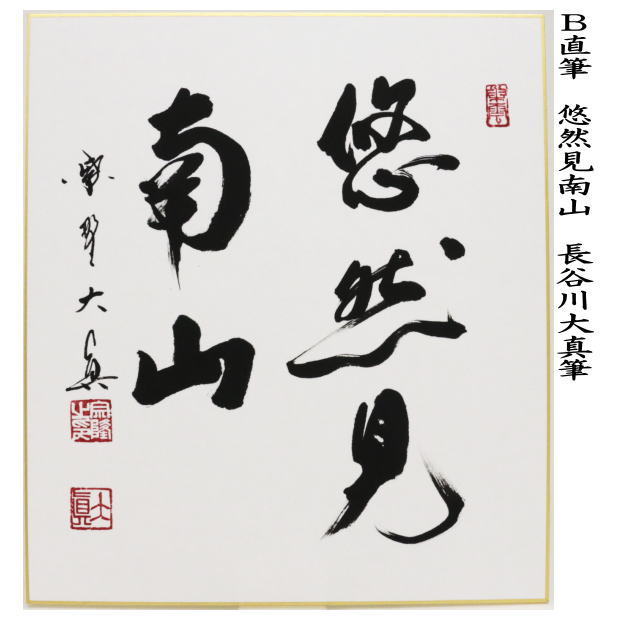 B直筆　悠然見南山　長谷川大真筆
悠然見
南山
大真